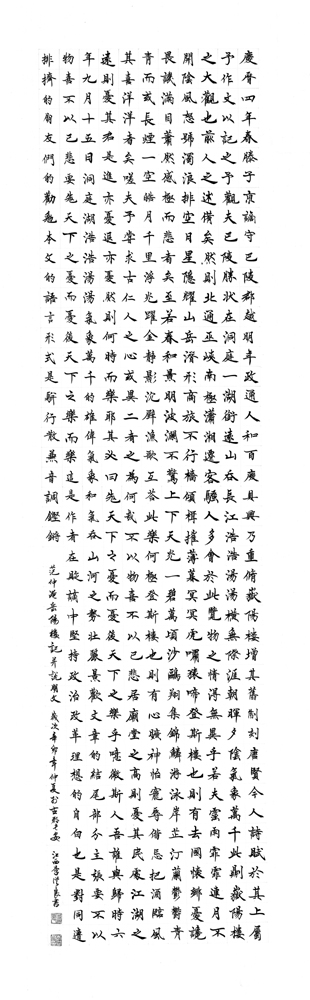 慶曆四年春滕子京謫守巴陵郡越明年政通人和百廢具興乃重脩嶽陽樓增其舊制刻唐賢今人詩賦於其上屬
予作文以記之予觀夫巴陵勝狀在洞庭一湖銜遠山吞長江浩浩湯湯橫無際涯朝暉夕陰氣象萬千此則嶽陽樓
之大觀也前人之述備矣然則北通巫峽南極瀟湘遷客騷人多會於此覽物之情得無異乎若夫霪雨霏霏連月不
開陰風怒號濁浪排空日星隱耀山岳潛形商旅不行檣傾楫摧薄暮冥冥虎嘯猿啼登斯樓也則有去國懷鄉憂讒
畏譏滿目蕭然感極而悲者矣至若春和景明波瀾不驚上下天光一碧萬頃沙鷗翔集錦鱗游泳岸芷汀蘭鬱鬱青
青而或長煙一空皓月千里浮光躍金靜影沉璧漁歌互答此樂何極登斯樓也則有心曠神怡寵辱偕忘把酒臨風
其喜洋洋者矣嗟夫予嘗求古仁人之心或異二者之為何哉不以物喜不以己悲居廟堂之高則憂其民處江湖之
遠則憂其君是進亦憂退亦憂然則何時而樂耶其必曰先天下之憂而憂後天下之樂乎噫微斯人吾誰與歸時六
年九月十五日洞庭湖浩浩湯湯氣象萬千的雄偉氣象和氣吞山河之勢壯麗景歎文章的結尾部分主張要不以
物喜不以己悲要先天下之憂而憂後天下之樂而樂這是作者在貶謫中堅持政治改革理想的自白也是對同遭
排擠的朋友們的勸勉本文的語言形式是駢行散兼音調鏗鏘
范仲淹岳陽樓記并說明文 歲次辛卯年仲夏於古都 江西李